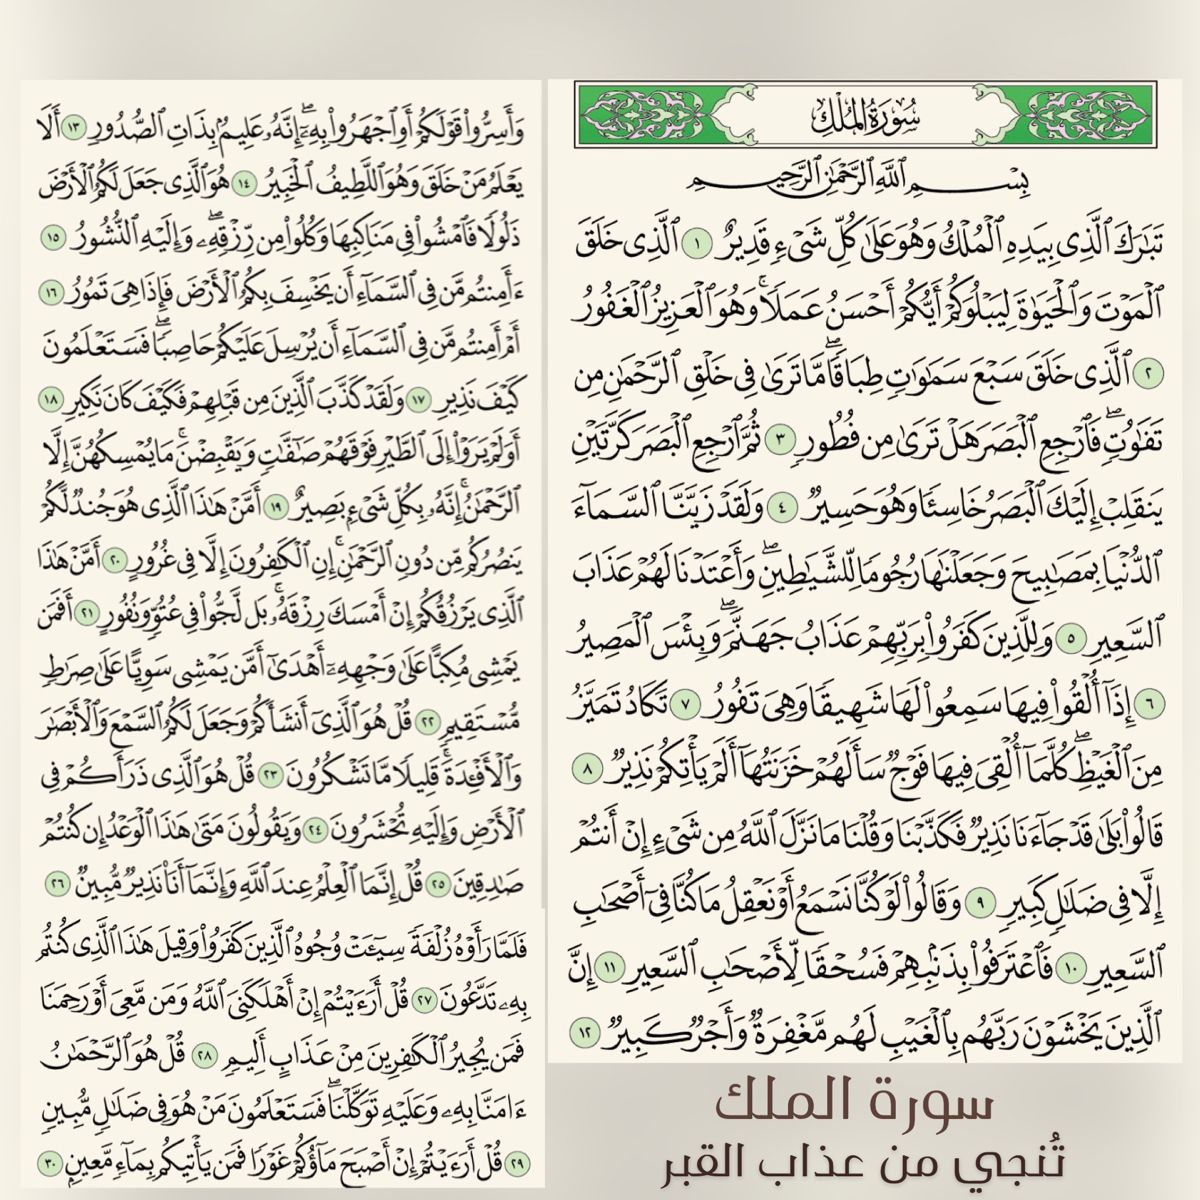 سُورَةُ الْمُلْكِ
بِسْمِ ٱللَّهِ ٱلرَّحْمَٰنِ ٱلرَّحِيمِ
تَبَٰرَكَ ٱلَّذِى بِيَدِهِ ٱلْمُلْكُ وَهُوَ عَلَىٰ كُلِّ شَىْءٍ قَدِيرٌ ١ ٱلَّذِى خَلَقَ
ٱلْمَوْتَ وَٱلْحَيَوٰةَ لِيَبْلُوَكُمْ أَيُّكُمْ أَحْسَنُ عَمَلًا ۚ وَهُوَ ٱلْعَزِيزُ ٱلْغَفُورُ
٢ ٱلَّذِى خَلَقَ سَبْعَ سَمَٰوَٰتٍ طِبَاقًا ۖ مَّا تَرَىٰ فِى خَلْقِ ٱلرَّحْمَٰنِ مِن
تَفَٰوُتٍ ۖ فَٱرْجِعِ ٱلْبَصَرَ هَلْ تَرَىٰ مِن فُطُورٍ ٣ ثُمَّ ٱرْجِعِ ٱلْبَصَرَ كَرَّتَيْنِ
يَنقَلِبْ إِلَيْكَ ٱلْبَصَرُ خَاسِئًا وَهُوَ حَسِيرٌ ٤ وَلَقَدْ زَيَّنَّا ٱلسَّمَآءَ
ٱلدُّنْيَا بِمَصَٰبِيحَ وَجَعَلْنَٰهَا رُجُومًا لِّلشَّيَٰطِينِ ۖ وَأَعْتَدْنَا لَهُمْ عَذَابَ
ٱلسَّعِيرِ ٥ وَلِلَّذِينَ كَفَرُوا۟ بِرَبِّهِمْ عَذَابُ جَهَنَّمَ ۖ وَبِئْسَ ٱلْمَصِيرُ
٦ إِذَآ أُلْقُوا۟ فِيهَا سَمِعُوا۟ لَهَا شَهِيقًا وَهِىَ تَفُورُ ٧ تَكَادُ تَمَيَّزُ
مِنَ ٱلْغَيْظِ ۖ كُلَّمَآ أُلْقِىَ فِيهَا فَوْجٌ سَأَلَهُمْ خَزَنَتُهَآ أَلَمْ يَأْتِكُمْ نَذِيرٌ ٨
قَالُوا۟ بَلَىٰ قَدْ جَآءَنَا نَذِيرٌ فَكَذَّبْنَا وَقُلْنَا مَا نَزَّلَ ٱللَّهُ مِن شَىْءٍ إِنْ أَنتُمْ
إِلَّا فِى ضَلَٰلٍ كَبِيرٍ ٩ وَقَالُوا۟ لَوْ كُنَّا نَسْمَعُ أَوْ نَعْقِلُ مَا كُنَّا فِىٓ أَصْحَٰبِ
ٱلسَّعِيرِ ١٠ فَٱعْتَرَفُوا۟ بِذَنۢبِهِمْ فَسُحْقًا لِّأَصْحَٰبِ ٱلسَّعِيرِ ١١ إِنَّ
ٱلَّذِينَ يَخْشَوْنَ رَبَّهُم بِٱلْغَيْبِ لَهُم مَّغْفِرَةٌ وَأَجْرٌ كَبِيرٌ ١٢
وَأَسِرُّوا۟ قَوْلَكُمْ أَوِ ٱجْهَرُوا۟ بِهِۦٓ ۖ إِنَّهُۥ عَلِيمٌۢ بِذَاتِ ٱلصُّدُورِ ١٣ أَلَا
يَعْلَمُ مَنْ خَلَقَ وَهُوَ ٱللَّطِيفُ ٱلْخَبِيرُ ١٤ هُوَ ٱلَّذِى جَعَلَ لَكُمُ ٱلْأَرْضَ
ذَلُولًا فَٱمْشُوا۟ فِى مَنَاكِبِهَا وَكُلُوا۟ مِن رِّزْقِهِۦ ۖ وَإِلَيْهِ ٱلنُّشُورُ ١٥
ءَأَمِنتُم مَّن فِى ٱلسَّمَآءِ أَن يَخْسِفَ بِكُمُ ٱلْأَرْضَ فَإِذَا هِىَ تَمُورُ ١٦
أَمْ أَمِنتُم مَّن فِى ٱلسَّمَآءِ أَن يُرْسِلَ عَلَيْكُمْ حَاصِبًا ۖ فَسَتَعْلَمُونَ
كَيْفَ نَذِيرِ ١٧ وَلَقَدْ كَذَّبَ ٱلَّذِينَ مِن قَبْلِهِمْ فَكَيْفَ كَانَ نَكِيرِ ١٨
أَوَلَمْ يَرَوْا۟ إِلَى ٱلطَّيْرِ فَوْقَهُمْ صَٰٓفَّٰتٍ وَيَقْبِضْنَ ۚ مَا يُمْسِكُهُنَّ إِلَّا
ٱلرَّحْمَٰنُ ۚ إِنَّهُۥ بِكُلِّ شَىْءٍۭ بَصِيرٌ ١٩ أَمَّنْ هَٰذَا ٱلَّذِى هُوَ جُندٌ لَّكُمْ
يَنصُرُكُم مِّن دُونِ ٱلرَّحْمَٰنِ ۚ إِنِ ٱلْكَٰفِرُونَ إِلَّا فِى غُرُورٍ ٢٠ أَمَّنْ هَٰذَا
ٱلَّذِى يَرْزُقُكُمْ إِنْ أَمْسَكَ رِزْقَهُۥ ۚ بَل لَّجُّوا۟ فِى عُتُوٍّ وَنُفُورٍ ٢١ أَفَمَن
يَمْشِى مُكِبًّا عَلَىٰ وَجْهِهِۦٓ أَهْدَىٰٓ أَمَّن يَمْشِى سَوِيًّا عَلَىٰ صِرَٰطٍ
مُّسْتَقِيمٍ ٢٢ قُلْ هُوَ ٱلَّذِىٓ أَنشَأَكُمْ وَجَعَلَ لَكُمُ ٱلسَّمْعَ وَٱلْأَبْصَٰرَ
وَٱلْأَفْـِٔدَةَ ۖ قَلِيلًا مَّا تَشْكُرُونَ ٢٣ قُلْ هُوَ ٱلَّذِى ذَرَأَكُمْ فِى
ٱلْأَرْضِ وَإِلَيْهِ تُحْشَرُونَ ٢٤ وَيَقُولُونَ مَتَىٰ هَٰذَا ٱلْوَعْدُ إِن كُنتُمْ
صَٰدِقِينَ ٢٥ قُلْ إِنَّمَا ٱلْعِلْمُ عِندَ ٱللَّهِ وَإِنَّمَآ أَنَا۠ نَذِيرٌ مُّبِينٌ ٢٦
فَلَمَّا رَأَوْهُ زُلْفَةً سِيٓـَٔتْ وُجُوهُ ٱلَّذِينَ كَفَرُوا۟ وَقِيلَ هَٰذَا ٱلَّذِى كُنتُم
بِهِۦ تَدَّعُونَ ٢٧ قُلْ أَرَءَيْتُمْ إِنْ أَهْلَكَنِىَ ٱللَّهُ وَمَن مَّعِىَ أَوْ رَحِمَنَا
فَمَن يُجِيرُ ٱلْكَٰفِرِينَ مِنْ عَذَابٍ أَلِيمٍ ٢٨ قُلْ هُوَ ٱلرَّحْمَٰنُ
ءَامَنَّا بِهِۦ وَعَلَيْهِ تَوَكَّلْنَا ۖ فَسَتَعْلَمُونَ مَنْ هُوَ فِى ضَلَٰلٍ مُّبِينٍ
٢٩ قُلْ أَرَءَيْتُمْ إِنْ أَصْبَحَ مَآؤُكُمْ غَوْرًا فَمَن يَأْتِيكُم بِمَآءٍ مَّعِينٍۭ ٣٠
سورة الملك
تُنجي من عذاب القبر